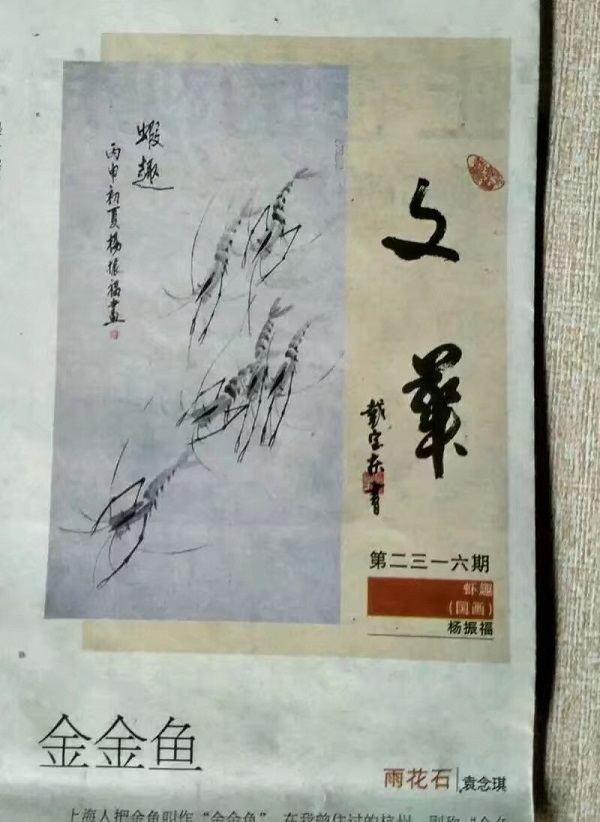 蝦趣
丙申初夏楊振福畫
文
華
戴
書
第二三一六期
虾趣
（国画）
杨振福
金金鱼
雨花石
袁念琪
上海人把金鱼叫作“金金鱼”。在我曾住过的杭州，则称“金鱼